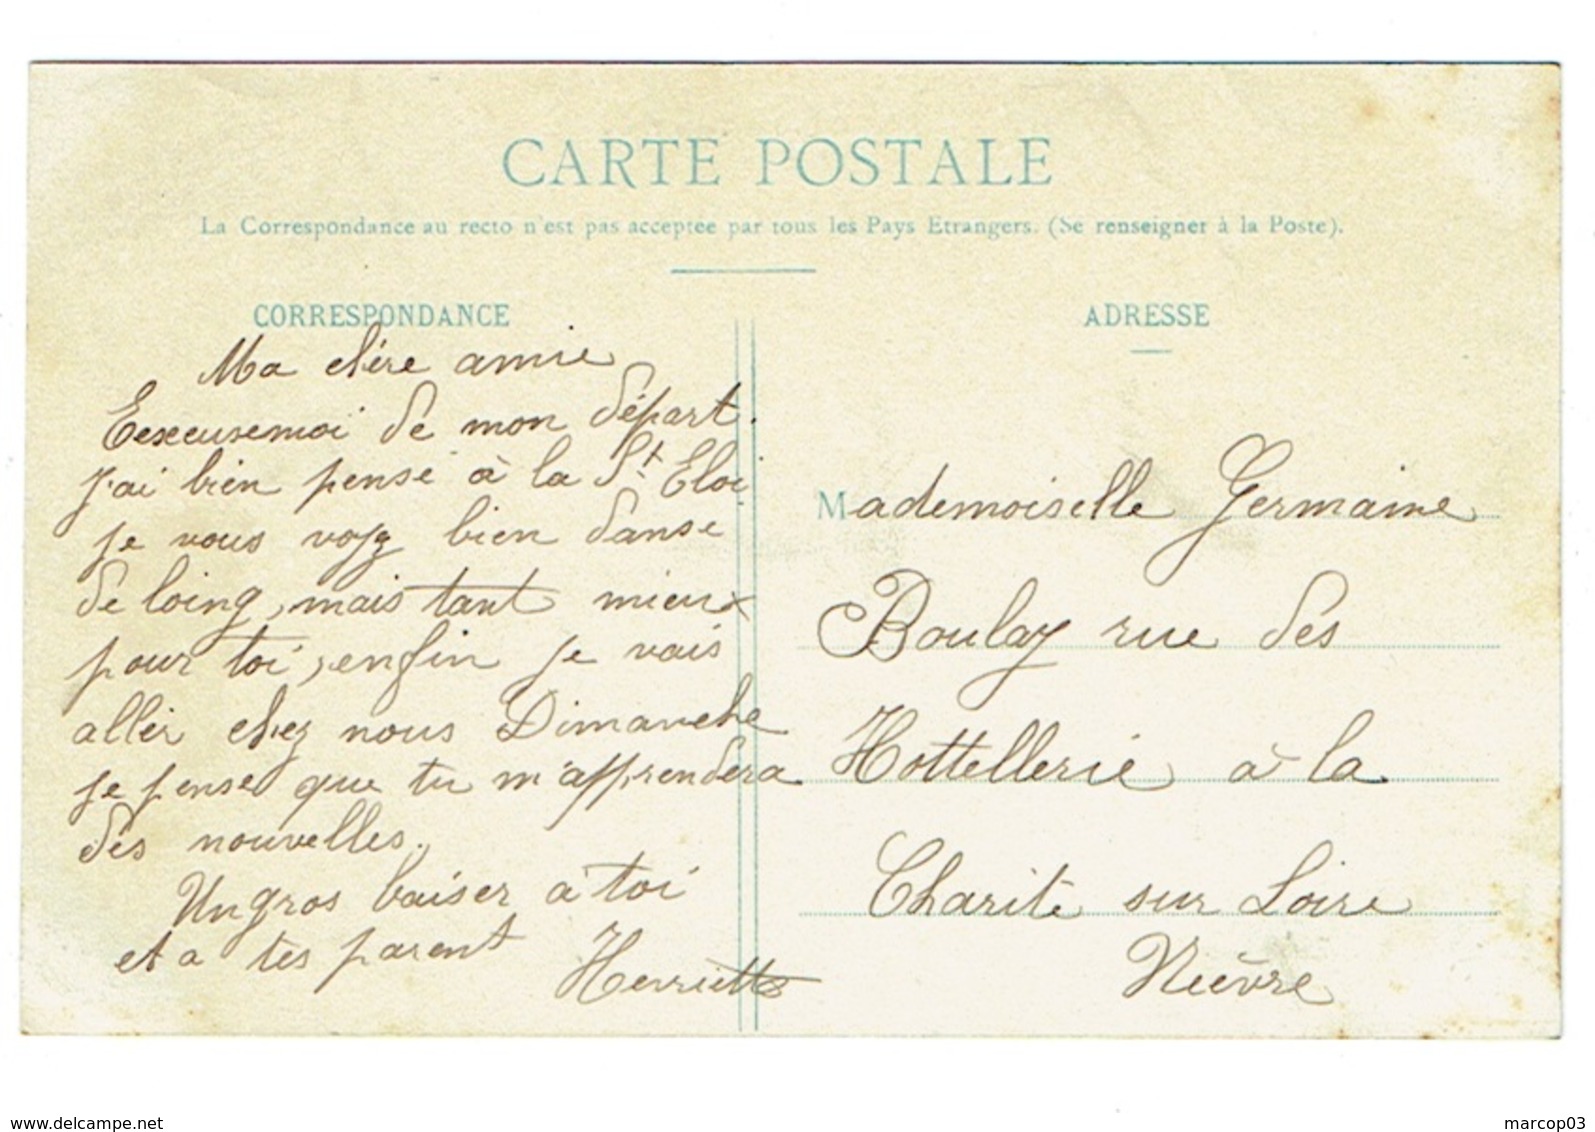 CARTE POSTALE
La Correspondance au recto n'est pas acceptée par tous les Pays Etrangers. (Se renseigner à la Poste).
CORRESPONDANCE
Ma chère amie
Eexcusemoi de mon départ.
j'ai bien pensé à la St Eloi
je vous voyz bien danse
de loing, mais tant mieux
pour toi, enfin je vais
aller chez nous Dimanche
je pense que tu m'apprendera
des nouvelles.
Un gros baiser à toi
et a tes parent
Henriette
ADRESSE
Mademoiselle Germaine
Boulay rue des
Hottellerie à la
Charité sur Loire
Nièvre
www.delcampe.net
marcop03